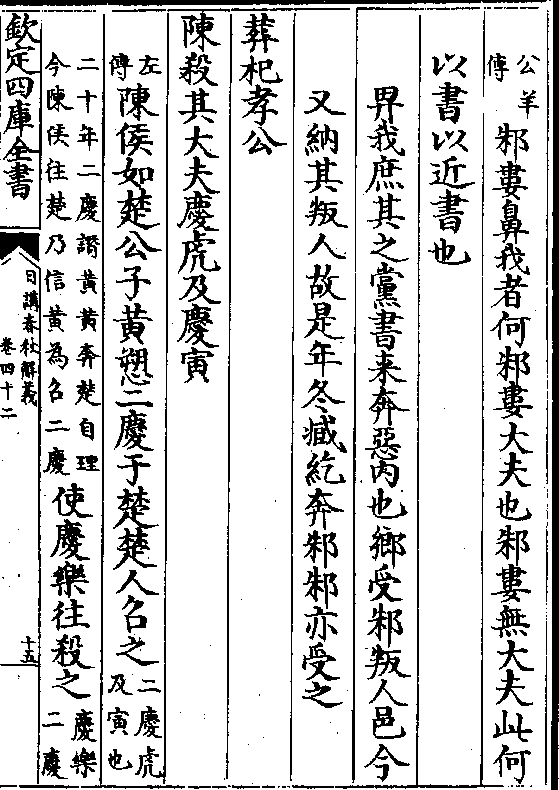 公羊傳邾婁鼻我者何邾婁大夫也邾婁無大夫此何
以書以近書也
畀我庶其之黨書來奔惡內也鄉受邾叛人邑今
又納其叛人故是年冬臧紇奔邾邾亦受之
葬杞孝公
陳殺其大夫慶虎及慶寅
左傳陳侯如楚公子黃愬二慶于楚楚人召之二慶虎及寅也
二十年二慶譖黃黃奔楚自理今陳侯往楚乃信黃為召二慶使慶樂往殺之慶樂二慶
欽定四庫全書
日講春秋解義
卷四十二
十五